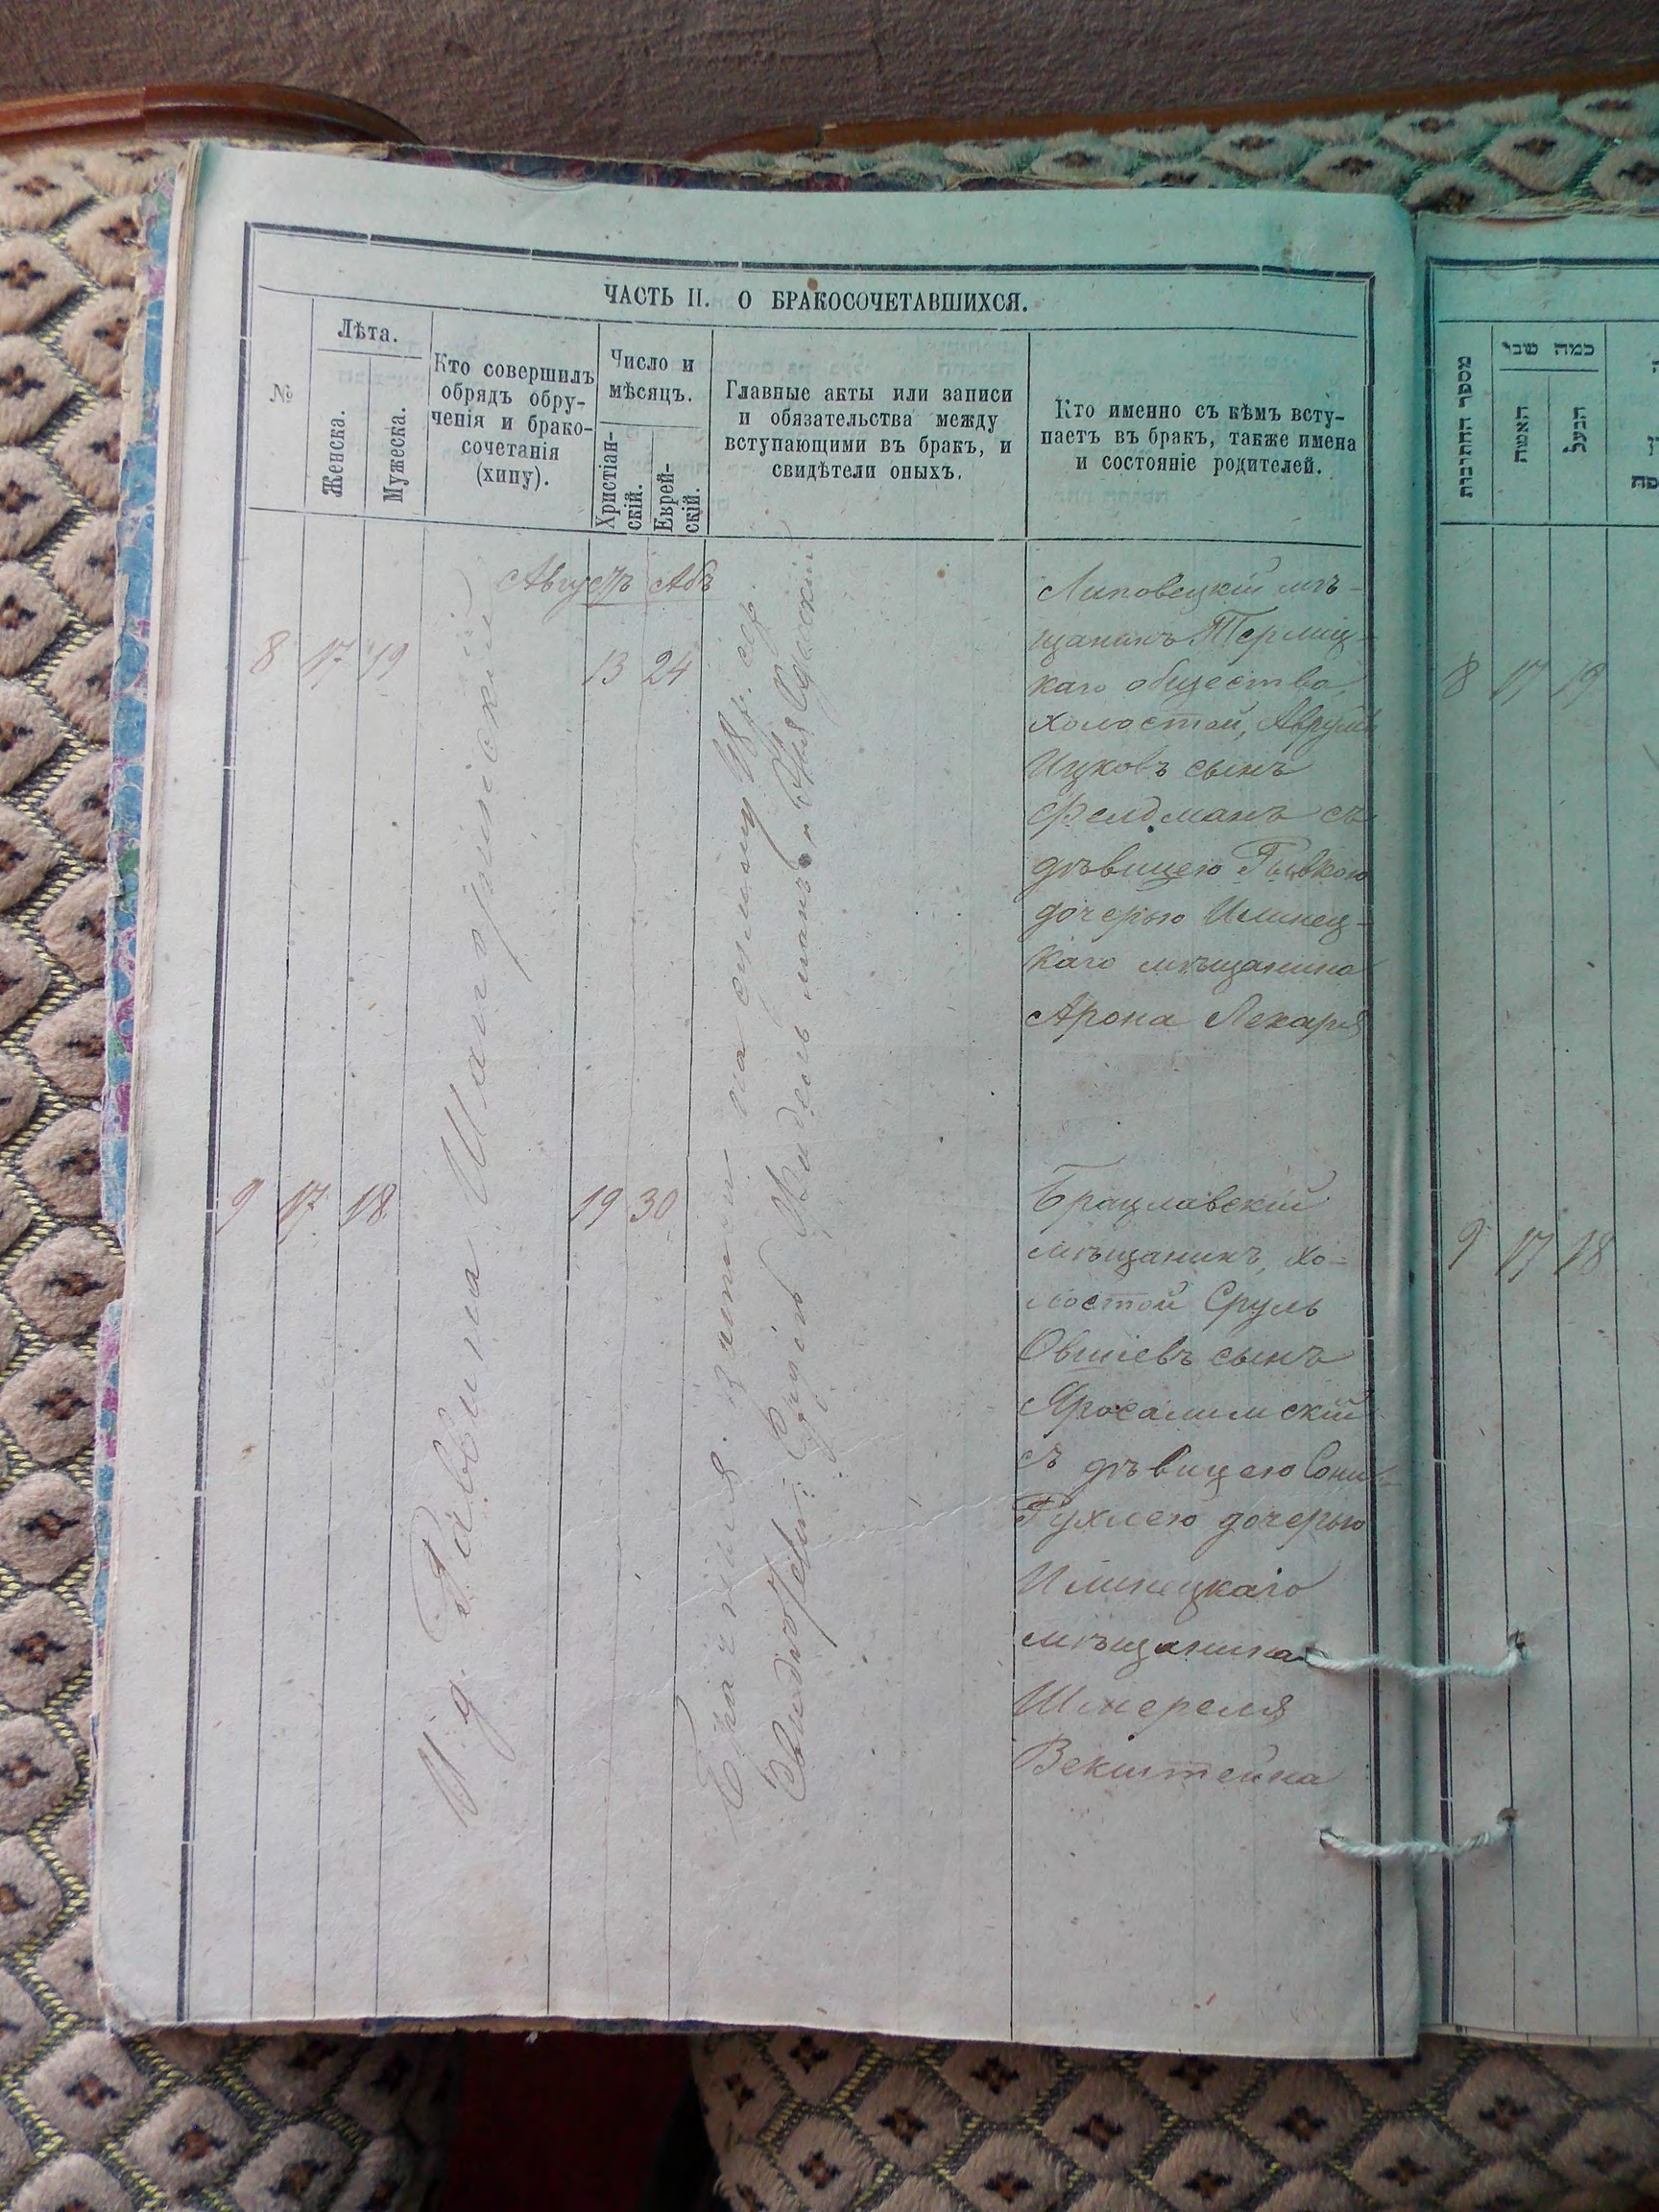 ЧАСТЬ II. О БРАКОСОЧЕТАВШИХСЯ.
№
Лѣта.
Женска.
Мужеска.
Кто совершилъ
обрядъ обру-
ченія и брако-
сочетанія
(хипу).
Число и
мѣсяцъ.
Христіан-
скій.
Еврей-
скій.
Главные акты или записи
и обязательства между
вступающими въ бракъ, и
свидѣтели оныхъ.
Кто именно съ кѣмъ всту-
паетъ въ бракъ, также имена
и состояніе родителей.
Августъ Абъ
8 17 19
13 24
Липовецкій мѣ-
щанинъ
каго общества,
холостой, Аврумъ
Ицковъ сынъ
Фелдманъ съ
дѣвицею Рывкою
дочерью Илинец-
каго мѣщанина
Арона Лекаря
9 17 18
19 30
Брацлавскій
мѣщанинъ, хо-
лостой Сруль
Овшіевъ сынъ
Яросалимскій
съ дѣвицею
Рухлею дочерью
Илинецкаго
мѣщанина
Шмереля
Векштейна
И д Раввина
на сумму 48 р. сер.
מספר החתונות
כמה שני
האשה
הבעל
8 17 19
9 17 18